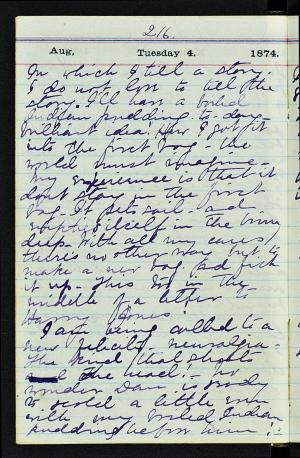 216.
Aug, Tuesday 4. 1874.
In which I tell a story.
I do not love to tell the
story. I'll have a boiled
Indian pudding to-day
brilliant idea. How I got it
into the first bag - the
world must imagine -
My experience is that it
don't stay in the first
bag. It sets sail - and
itself in the briny
deep. With all my cares,
there's no other way but to
make a new bag, and fish
it up. This is in the
middle of a letter to
Harry Jones!
I am being called to a
new felicity - neuralgia -
the kind that shoots
the head! - no
wonder Dave is ready
to scold a little even
with my boiled Indian
pudding before him!